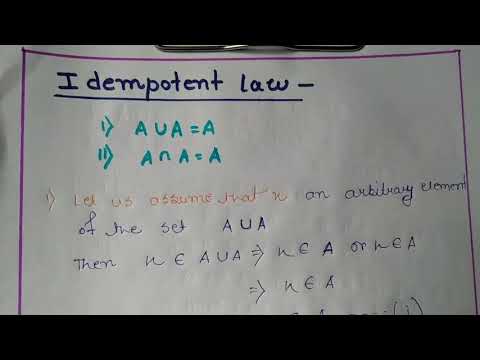 Idempotent law -
i) A ∪ A = A
ii) A ∩ A = A
i) Let us assume that x an arbitrary element
of the set A ∪ A
Then x ∈ A ∪ A ⇒ x ∈ A or x ∈ A
⇒ x ∈ A